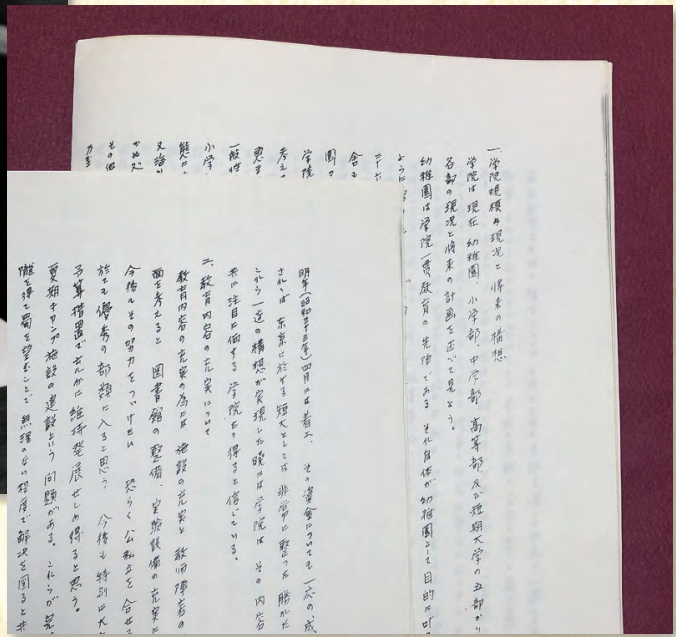 一、学院規模の現況と将来の構想
学院は現在 幼稚園、小学部、中学部、高等部及び短期大学の五部から
各部の現況と将来の計画を述べて見よう。
幼稚園は学院一貫教育の先陣である それ自体が幼稚園として目的に
ように
二十
舎も
園
学院
考え
一般性
小学
態
又海
かぬ
その
力
明年(昭和三十三年)四月には着工、その資金についても一応の成
されば 東京に於ける短大としては 非常に整った 勝れた
これら一連の構想が実現した暁には学院は その内容
共に注目に価する学院たり得ると信じている。
二、教育内容の充実について
教育内容の充実の為には 施設の充実と教師陣容の
面を考えると 図書館の整備、実験設備の充実に
今後もその努力をつづけたい 恐らく公私立を合せて
於ても優秀の部類に入ると思う 今後も特別に大
予算措置で充分に維持発展せしめ得ると思う。
夏期キャンプ施設の建設という問題がある。これらが完
隴を得て蜀を望むことで 無理のない程度で解決を図ると共